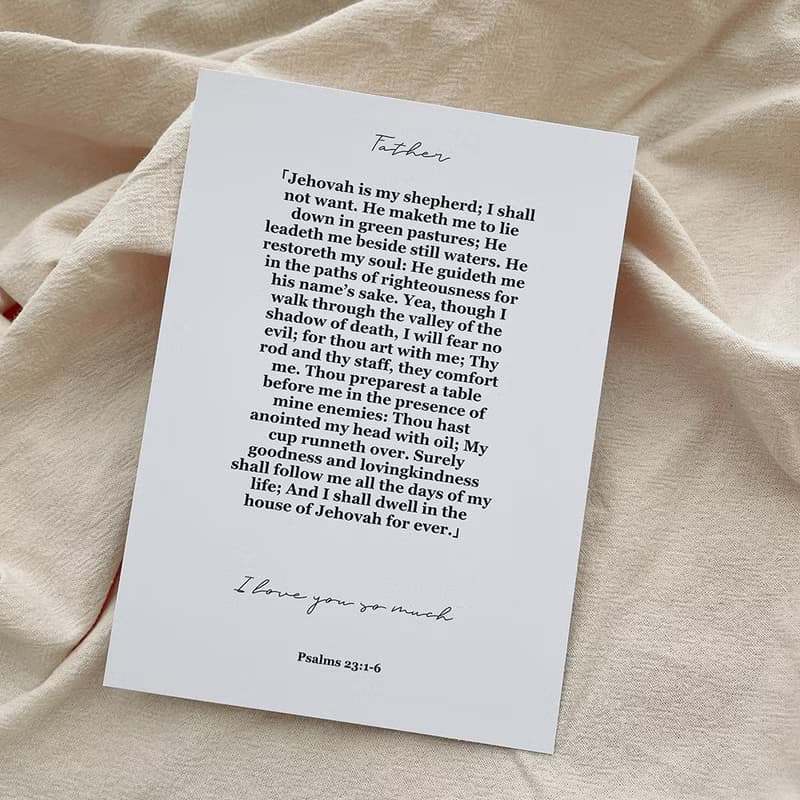 Father
「Jehovah is my shepherd; I shall
not want. He maketh me to lie
down in green pastures; He
leadeth me beside still waters. He
restoreth my soul: He guideth me
in the paths of righteousness for
his name’s sake. Yea, though I
walk through the valley of the
shadow of death, I will fear no
evil; for thou art with me; Thy
rod and thy staff, they comfort
me. Thou preparest a table
before me in the presence of
mine enemies: Thou hast
anointed my head with oil; My
cup runneth over. Surely
goodness and lovingkindness
shall follow me all the days of my
life; And I shall dwell in the
house of Jehovah for ever.」
I love you so much
Psalms 23:1-6